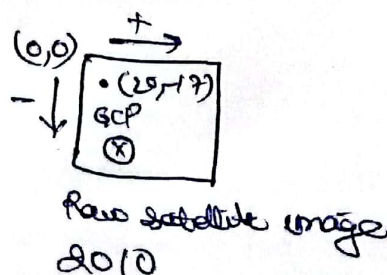 +
(0,0)
-
• (20,-17)
GCP
X
Raw satellite image
2010